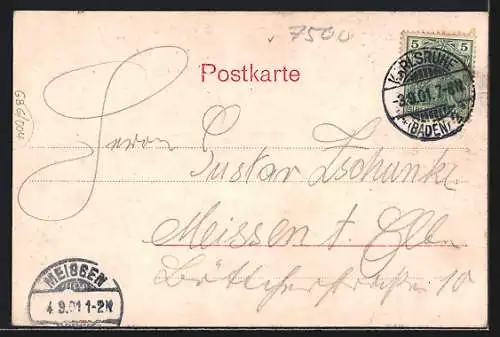 7500
5 5
KARLSRUHE
-3.9.01. 7-8N
(BADEN)
Postkarte
GBG/004
Herrn
Gustav Zschunke
Meissen t. Elbe
Böttcherstraße 10
MEISSEN
4.9.01 1-2N